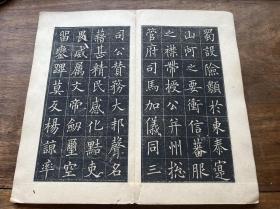 蜀設險類於東秦寔
山河之要衝信蕃服
之襟帶授公并州捴
管府司馬加儀同三
司公贊務大邦聲名
藉甚精民感化黠吏
畏威属文帝劒璽空
留鑾蹕莫反楊諒率